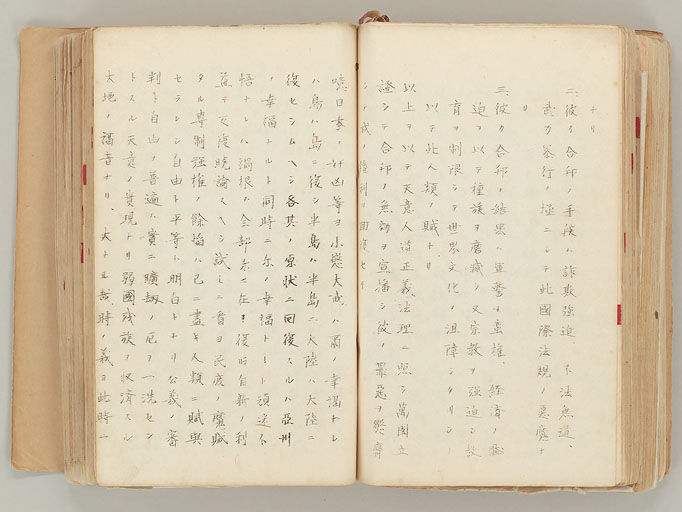 ナリ
二、彼カ合邦ノ手段ハ詐欺強迫、不法無道、
武力暴行ノ極ニシテ此國際法規ノ惡魔ナ
リ
三、彼カ合邦ノ結果ハ軍警ノ蛮權、經済ノ壓
迫ヲ以テ種族ヲ磨滅シ又宗教ヲ强迫シ敎
育ヲ制限シテ世界文化ヲ沮障シタリシ
以テ此人類ノ賊ナリ
以上ヲ以テ天意人道正義法理ニ照シ萬國立
證シテ合邦ノ無効ヲ宣播シ彼ノ罪惡ヲ懲膺
シテ我ノ權利ヲ回復セリ
噫日本ノ 凶等ヨ小懲大戒ハ爾ノ幸福ナレ
ハ島ハ島ニ復シ半島ハ半島ニ大陸ハ大陸ニ
復セシムヘシ各其ノ原状ニ回復スルハ亞州
ノ幸福ナルト同時ニ尓ノ幸福ナリト頑迷不
悟ナレハ禍根ハ全部尓ニ在リ復旧自新ノ利
益ヲ反復曉諭スヘシ試ミニ看ヨ民庶ノ魔賊
タル專制强權ノ餘焔ハ已ニ盡キ人類ニ賦與
セラレシ自由ト平等ハ明白トナリ公義ノ審
判ト自由ノ普遍ハ實ニ曠劫ノ厄ヲ一洗セン
トスル天意ノ實現ナリ弱國残族ヲ救済スル
大地ノ福音ナリ、大ナル哉時ノ義ヨ此時ニ